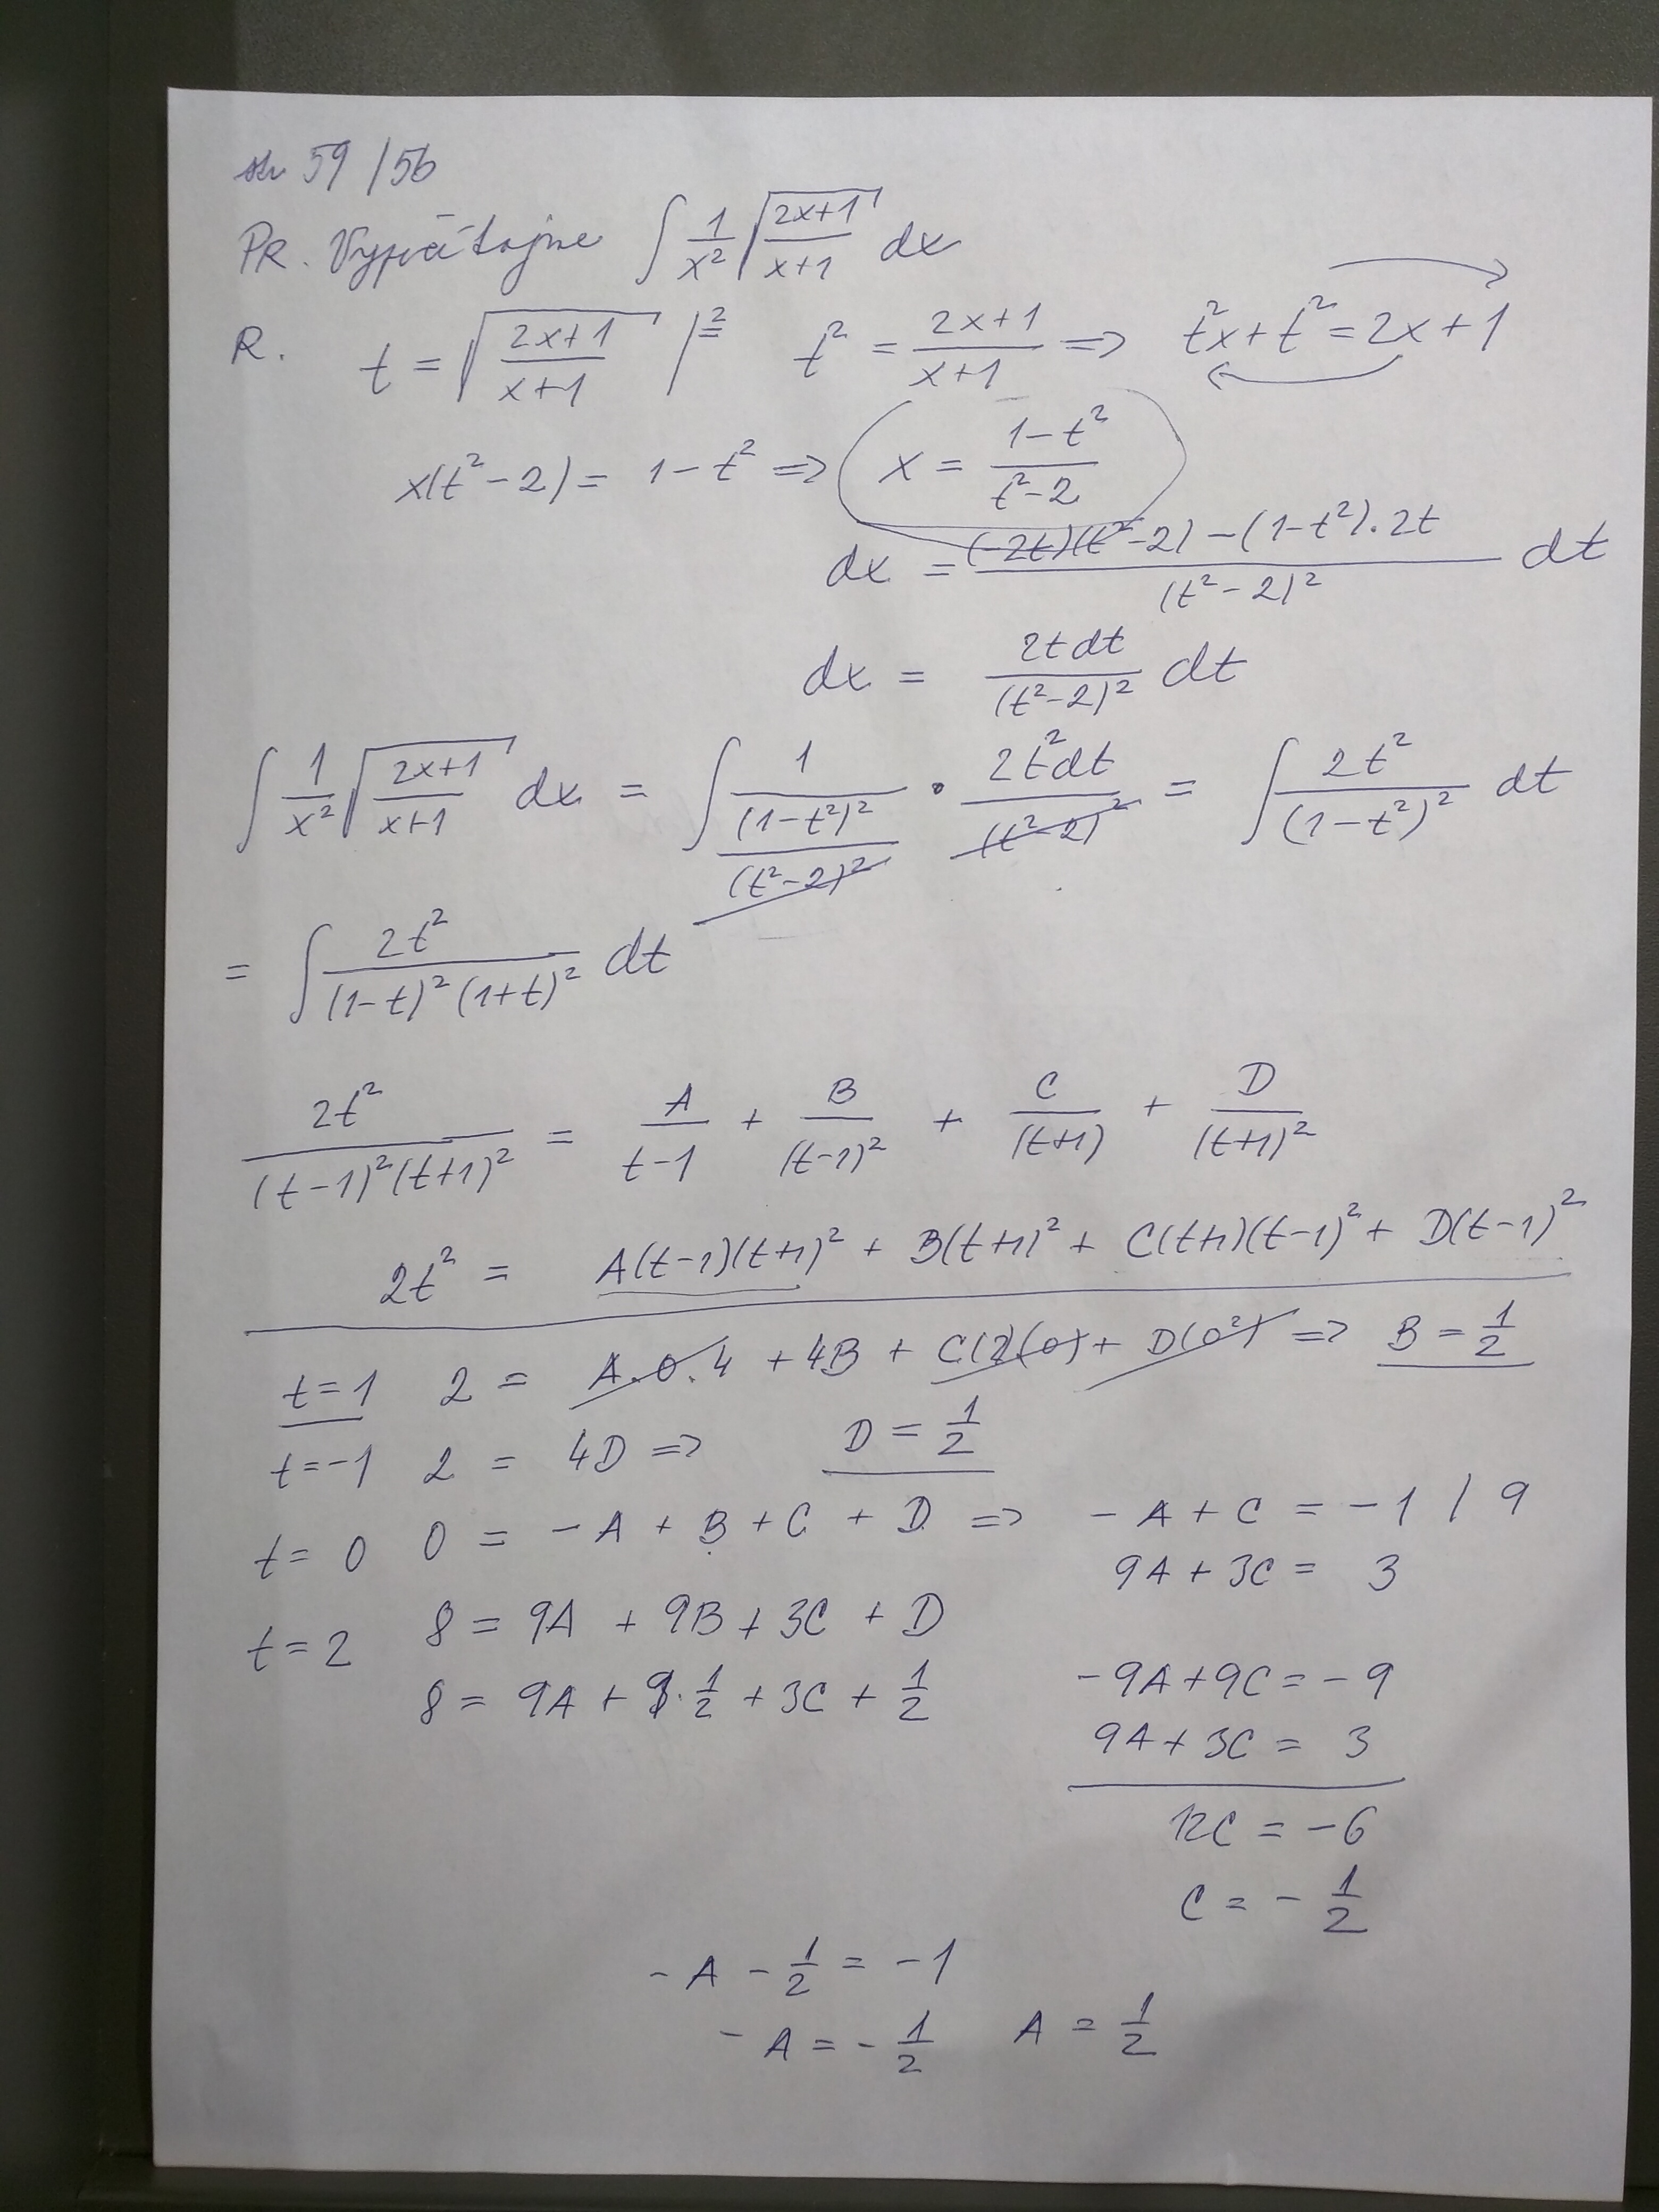 str 59 / 56
PR. Vypočítajme ∫ 1/x² √((2x+1)/(x+1)) dx
R. t = √((2x+1)/(x+1)) |² t² = (2x+1)/(x+1) => t²x + t² = 2x + 1
x(t² - 2) = 1 - t² => x = (1 - t²)/(t² - 2)
dx = ((-2t)(t² - 2) - (1 - t²) . 2t)/(t² - 2)² dt
dx = (2t dt)/(t² - 2)² dt
∫ 1/x² √((2x+1)/(x+1)) dx = ∫ 1/((1 - t²)²/(t² - 2)²) · (2t² dt)/(t² - 2)² = ∫ 2t²/(1 - t²)² dt
= ∫ 2t²/((1 - t)² (1 + t)²) dt
2t²/((t - 1)² (t + 1)²) = A/(t - 1) + B/(t - 1)² + C/(t + 1) + D/(t + 1)²
2t² = A(t - 1)(t + 1)² + B(t + 1)² + C(t + 1)(t - 1)² + D(t - 1)²
t = 1 2 = A . 0 . 4 + 4B + C(2)(0) + D(0²) => B = 1/2
t = -1 2 = 4D => D = 1/2
t = 0 0 = - A + B + C + D => - A + C = - 1 / 9
9A + 3C = 3
t = 2 8 = 9A + 9B + 3C + D
8 = 9A + 9 · 1/2 + 3C + 1/2
- 9A + 9C = - 9
9A + 3C = 3
12C = - 6
C = - 1/2
- A - 1/2 = - 1
- A = - 1/2 A = 1/2